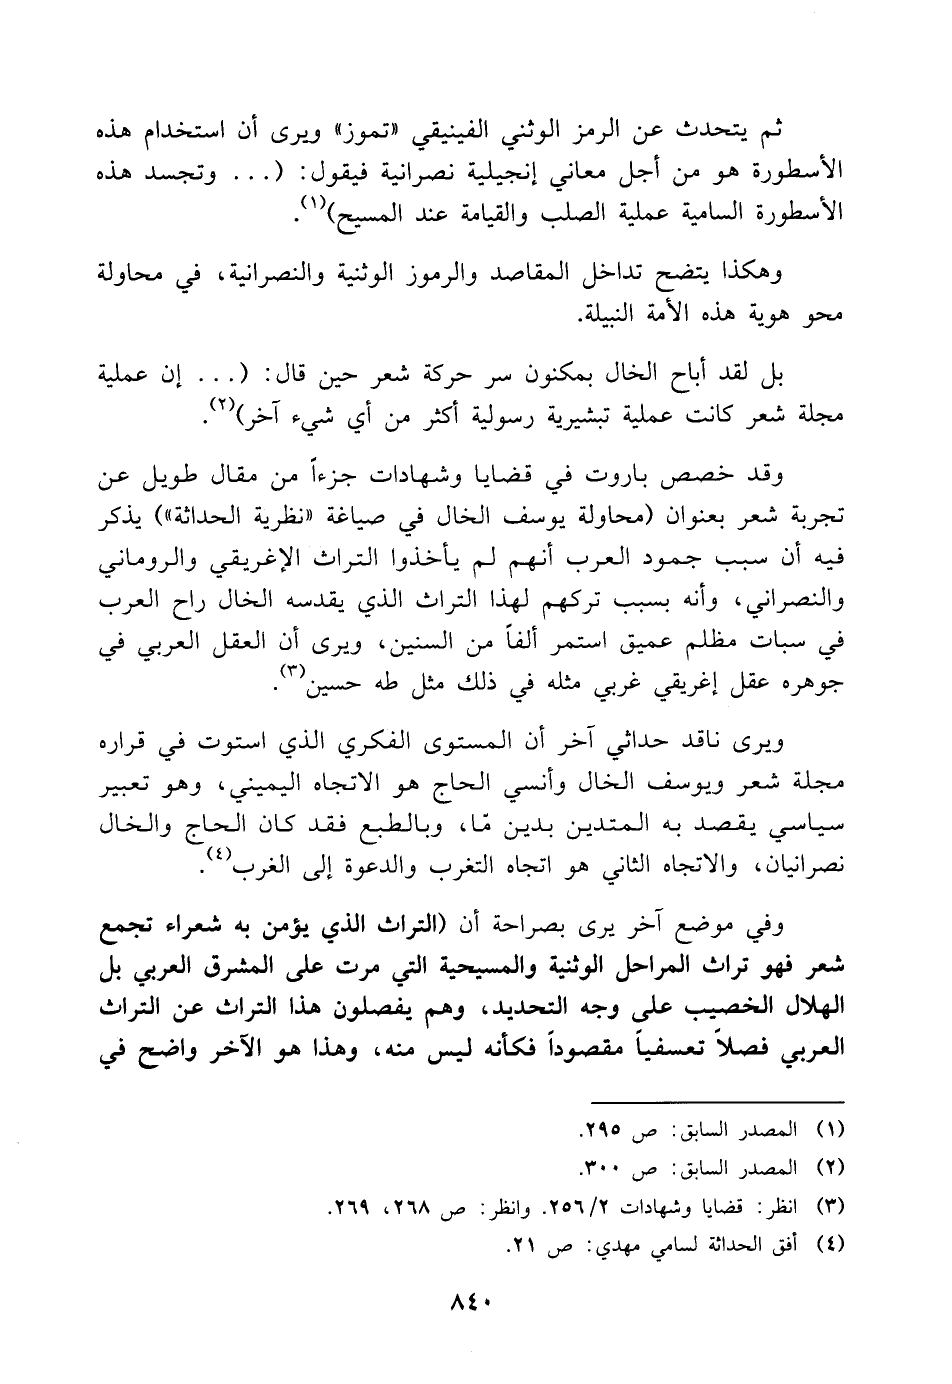 ثم يتحدث عن الرمز الوثني الفينيقي «تموز» ويرى أن استخدام هذه
الأسطورة هو من أجل معاني إنجيلية نصرانية فيقول: (... وتجسد هذه
الأسطورة السامية عملية الصلب والقيامة عند المسيح)(١).
وهكذا يتضح تداخل المقاصد والرموز الوثنية والنصرانية، في محاولة
محو هوية هذه الأمة النبيلة.
بل لقد أباح الخال بمكنون سر حركة شعر حين قال: (... إن عملية
مجلة شعر كانت عملية تبشيرية رسولية أكثر من أي شيء آخر)(٢).
وقد خصص باروت في قضايا وشهادات جزءاً من مقال طويل عن
تجربة شعر بعنوان (محاولة يوسف الخال في صياغة «نظرية الحداثة») يذكر
فيه أن سبب جمود العرب أنهم لم يأخذوا التراث الإغريقي والروماني
والنصراني، وأنه بسبب تركهم لهذا التراث الذي يقدسه الخال راح العرب
في سبات مظلم عميق استمر ألفاً من السنين، ويرى أن العقل العربي في
جوهره عقل إغريقي غربي مثله في ذلك مثل طه حسين(٣).
ويرى ناقد حداثي آخر أن المستوى الفكري الذي استوت في قراره
مجلة شعر ويوسف الخال وأنسي الحاج هو الاتجاه اليميني، وهو تعبير
سياسي يقصد به المتدين بدين مّا، وبالطبع فقد كان الحاج والخال
نصرانيان، والاتجاه الثاني هو اتجاه التغرب والدعوة إلى الغرب(٤).
وفي موضع آخر يرى بصراحة أن (التراث الذي يؤمن به شعراء تجمع
شعر فهو تراث المراحل الوثنية والمسيحية التي مرت على المشرق العربي بل
الهلال الخصيب على وجه التحديد، وهم يفصلون هذا التراث عن التراث
العربي فصلاً تعسفياً مقصوداً فكأنه ليس منه، وهذا هو الآخر واضح في
(١) المصدر السابق: ص ٢٩٥.
(٢) المصدر السابق: ص ٣٠٠.
(٣) انظر: قضايا وشهادات ٢/ ٢٥٦. وانظر: ص ٢٦٨، ٢٦٩.
(٤) أفق الحداثة لسامي مهدي: ص ٢١.
٨٤٠